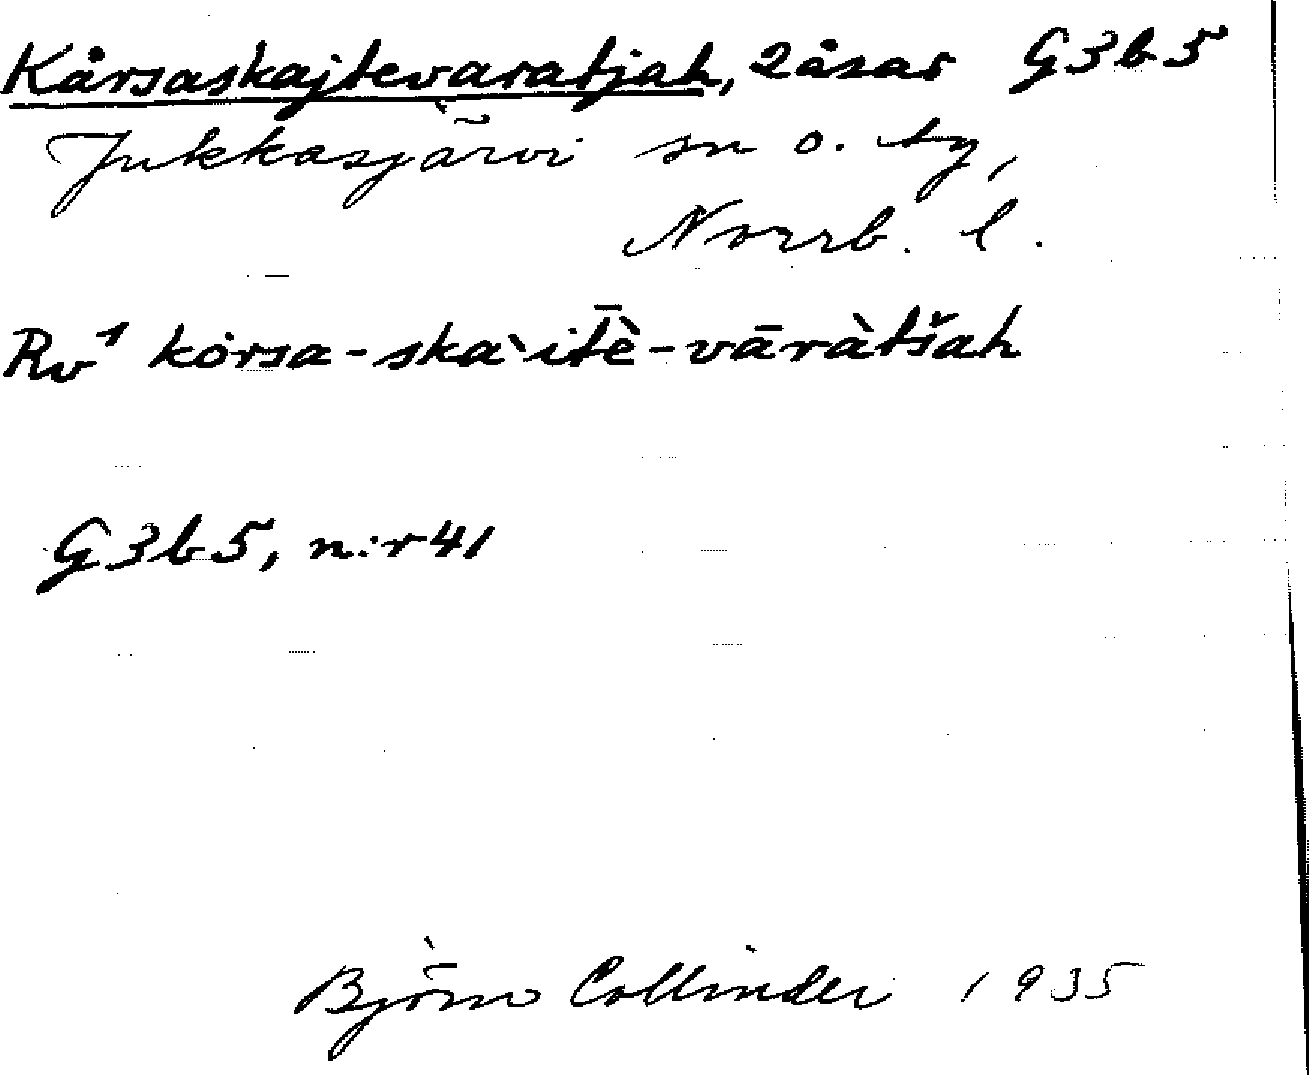 Kårsaskajtevaratjah, 2 åsar G3b5
Jukkasjärvi sn o. tg,
Norrb. l.
Rv1 kòrsa-ska`itḕ-vāràtšah
G3b5, n:r 41
Björn Collinder 1935